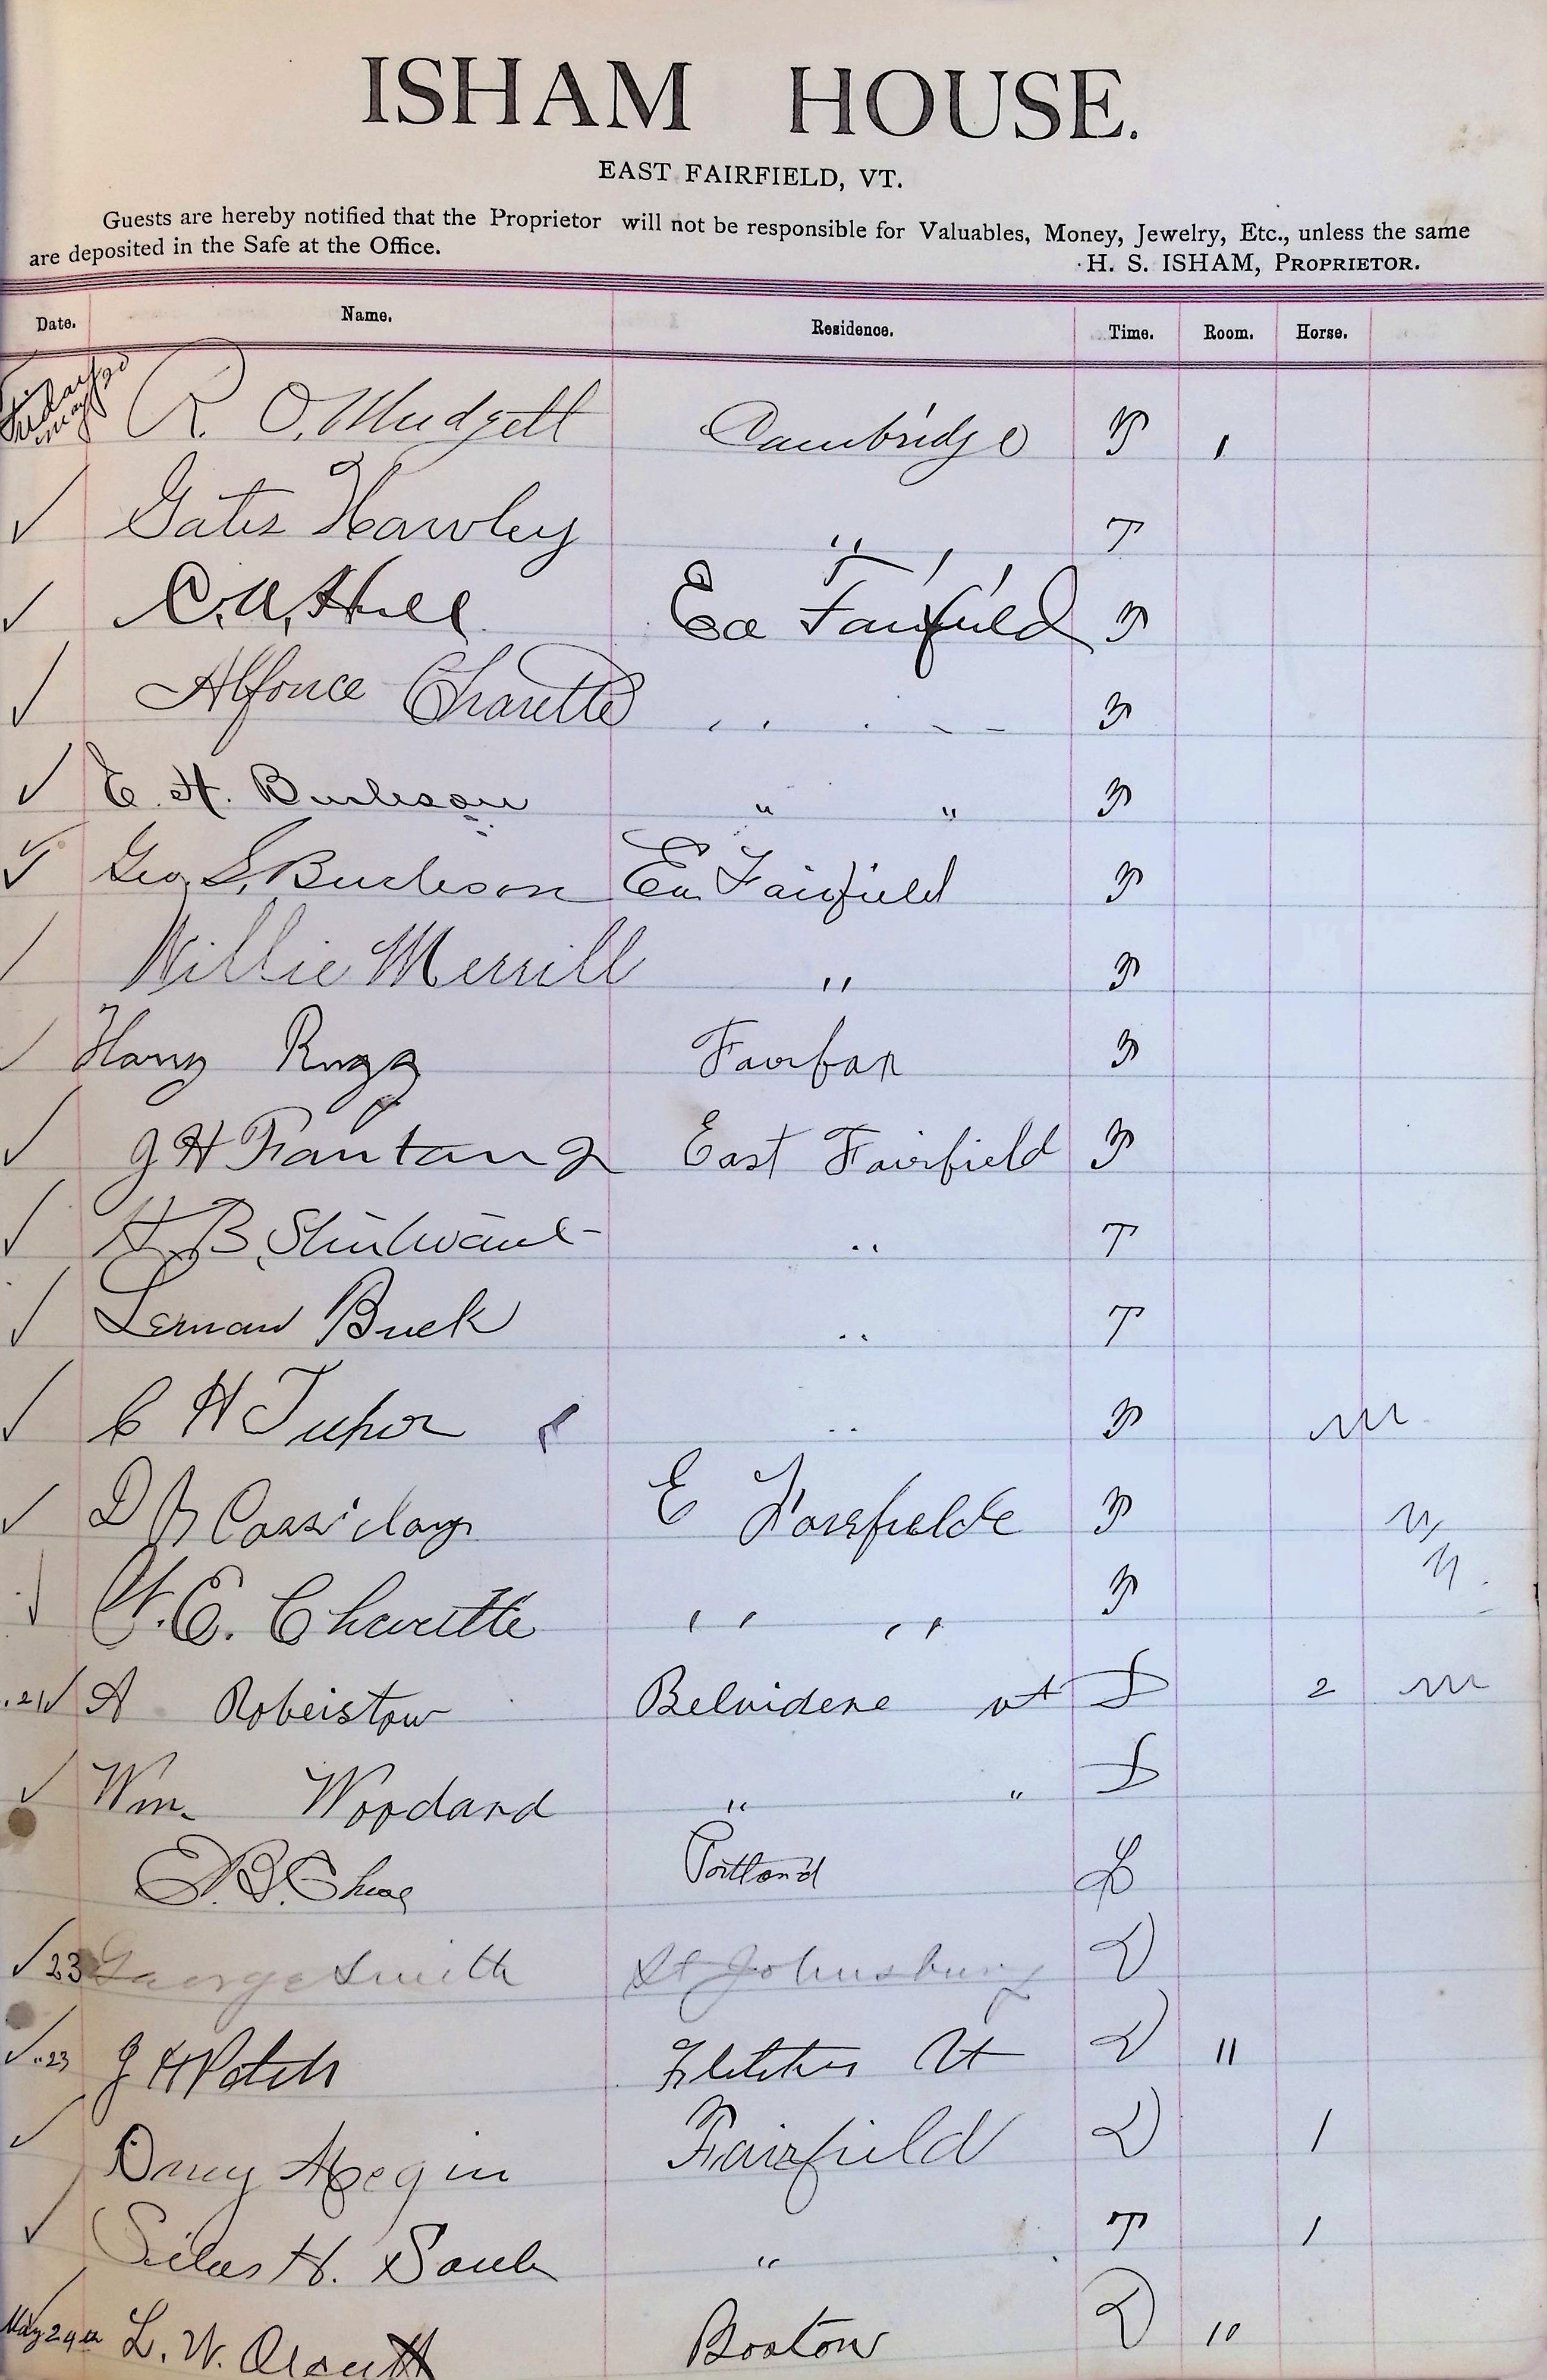 ISHAM HOUSE.
EAST FAIRFIELD, VT.
Guests are hereby notified that the Proprietor will not be responsible for Valuables, Money, Jewelry, Etc., unless the same
are deposited in the Safe at the Office.
H. S. ISHAM, PROPRIETOR.
Date. Name. Residence. Time. Room. Horse.
Friday May 20 R. O. Mudgett Cambridge 1
✓ Gates Hawley " T
✓ C. A. Hull Ea Fairfield
✓ Alfonce Charette
✓ E. H. Burleson " "
✓ Geo. S. Burleson Ea Fairfield
Willie Merrill "
Harry Rugg Fairfax
✓ J H Fantang East Fairfield
✓ H. B. " T
✓ Leman Buck " T
✓ C H "
✓ D Cassiday E
E. Charette " "
21 ✓ A Robeistow Belvidere vt 2
✓ Wm. Woodard " "
E. B. Chase Portland
✓ 23 George Smith St Johnsbury D
✓ "23 J H Patch Fletcher Vt D 11
✓ Fairfield D 1
✓ Silas H. Soule " T 1
May 24th L. W. Boston D 10